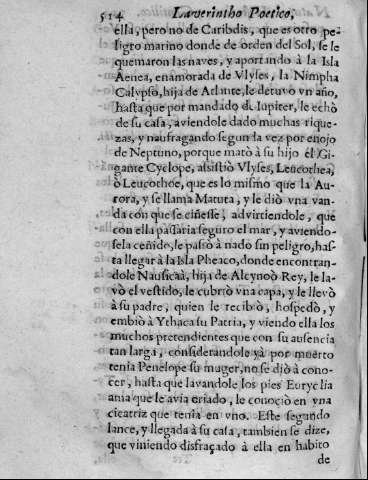 514 Laverintho Poetico,
ella, pero no de Caribdis, que es otro pe-
ligro marino donde de orden del Sol, se le
quemaron las naves, y aportando à la Isla
Aenea, enamorada de Vlyses, la Nimpha
Calypso, hija de Atlante, le detuvo vn año,
hasta que por mandado de Iupiter, le echò
de su casa, aviendole dado muchas rique-
zas, y naufragando segun la vez por enojo
de Neptuno, porque matò à su hijo él Gi-
gante Cyclope, assistiò Vlyses, Leucothea,
ò Leucothoe, que es lo mismo que la Au-
rora, y se llama Matuta, y le diò vna van-
da con que se ciñesse, advirtiendole, que
con ella passaria seguro el mar, y aviendo-
sela ceñido, le passò à nado sin peligro, has-
ta llegar à la Isla Pheaco, donde encontran-
dole Nausicaà, hija de Alcynoò Rey, le la-
vò el vestido, le cubriò vna capa, y le llevò
à su padre, quien le recibiò, hospedò, y
embiò à Ythaca su Patria, y viendo ella los
muchos pretendientes que con su ausencia
tan larga, considerandole yà por muerto
tenia Penelope su muger, no se diò à cono-
cer, hasta que lavandole los pies Euryclia
ama que le avia criado, le conociò en vna
cicatriz que tenia en vno. Este segundo
lance, y llegada à su casa, tambien se dize,
que viniendo disfraçado à ella en habito
de